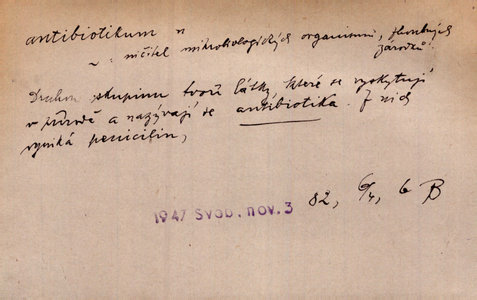 antibiotikum n
~ : ničitel mikrobiologických organismů, choroboplodných
zárodků
Druhou skupinu tvoří látky, které se vyskytují
v přírodě a nazývají se antibiotika. Z nich
vyniká penicilin,
1947 Svob. nov. 3 82, 6/4, 6 B